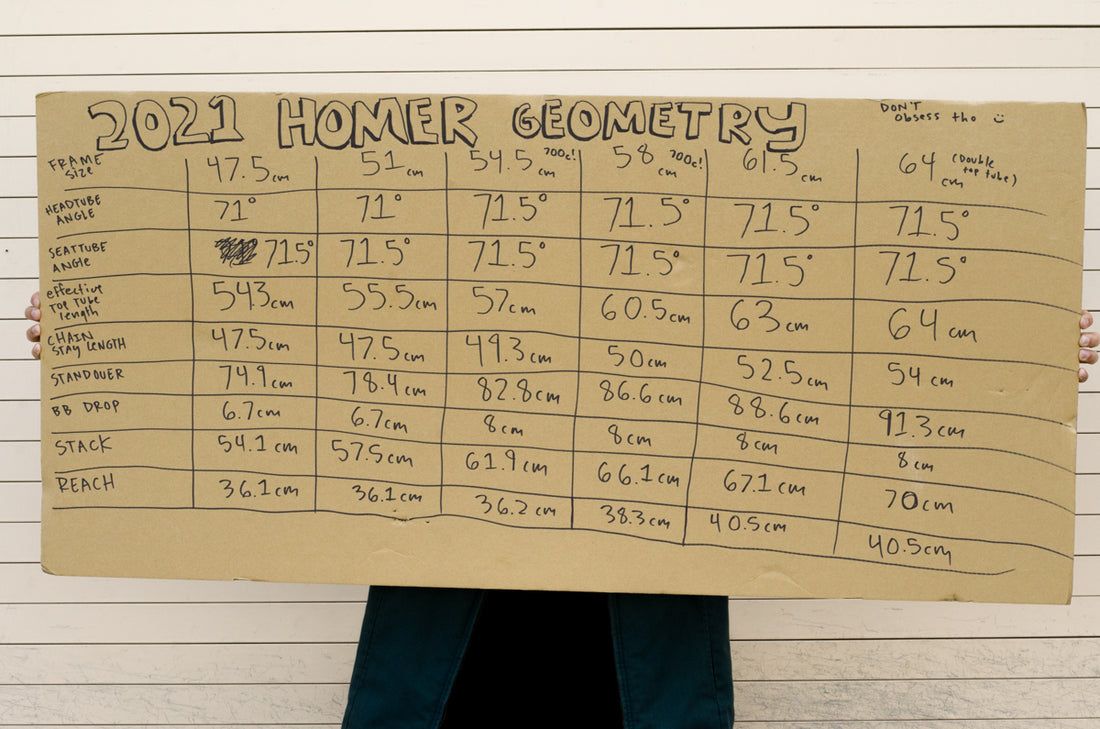 2021 HOMER GEOMETRY
DON'T
obsess tho
FRAME
SIZE
47.5cm 51cm 54.5 700c! 58cm 700c! 61.5cm 64cm (Double
top tube)
HEADTUBE
ANGLE
71° 71° 71.5° 71.5° 71.5° 71.5°
SEATTUBE
ANGLE
71.5° 71.5° 71.5° 71.5° 71.5° 71.5°
effective
TOP TUBE
length
54.3cm 55.5cm 57cm 60.5cm 63cm 64cm
CHAIN
STAY LENGTH
47.5cm 47.5cm 49.3cm 50cm 52.5cm 54cm
STANDOVER 74.9cm 78.4cm 82.8cm 86.6cm 88.6cm 91.3cm
BB DROP 6.7cm 6.7cm 8cm 8cm 8cm 8cm
STACK 54.1cm 57.5cm 61.9cm 66.1cm 67.1cm 70cm
REACH 36.1cm 36.1cm 36.2cm 38.3cm 40.5cm 40.5cm